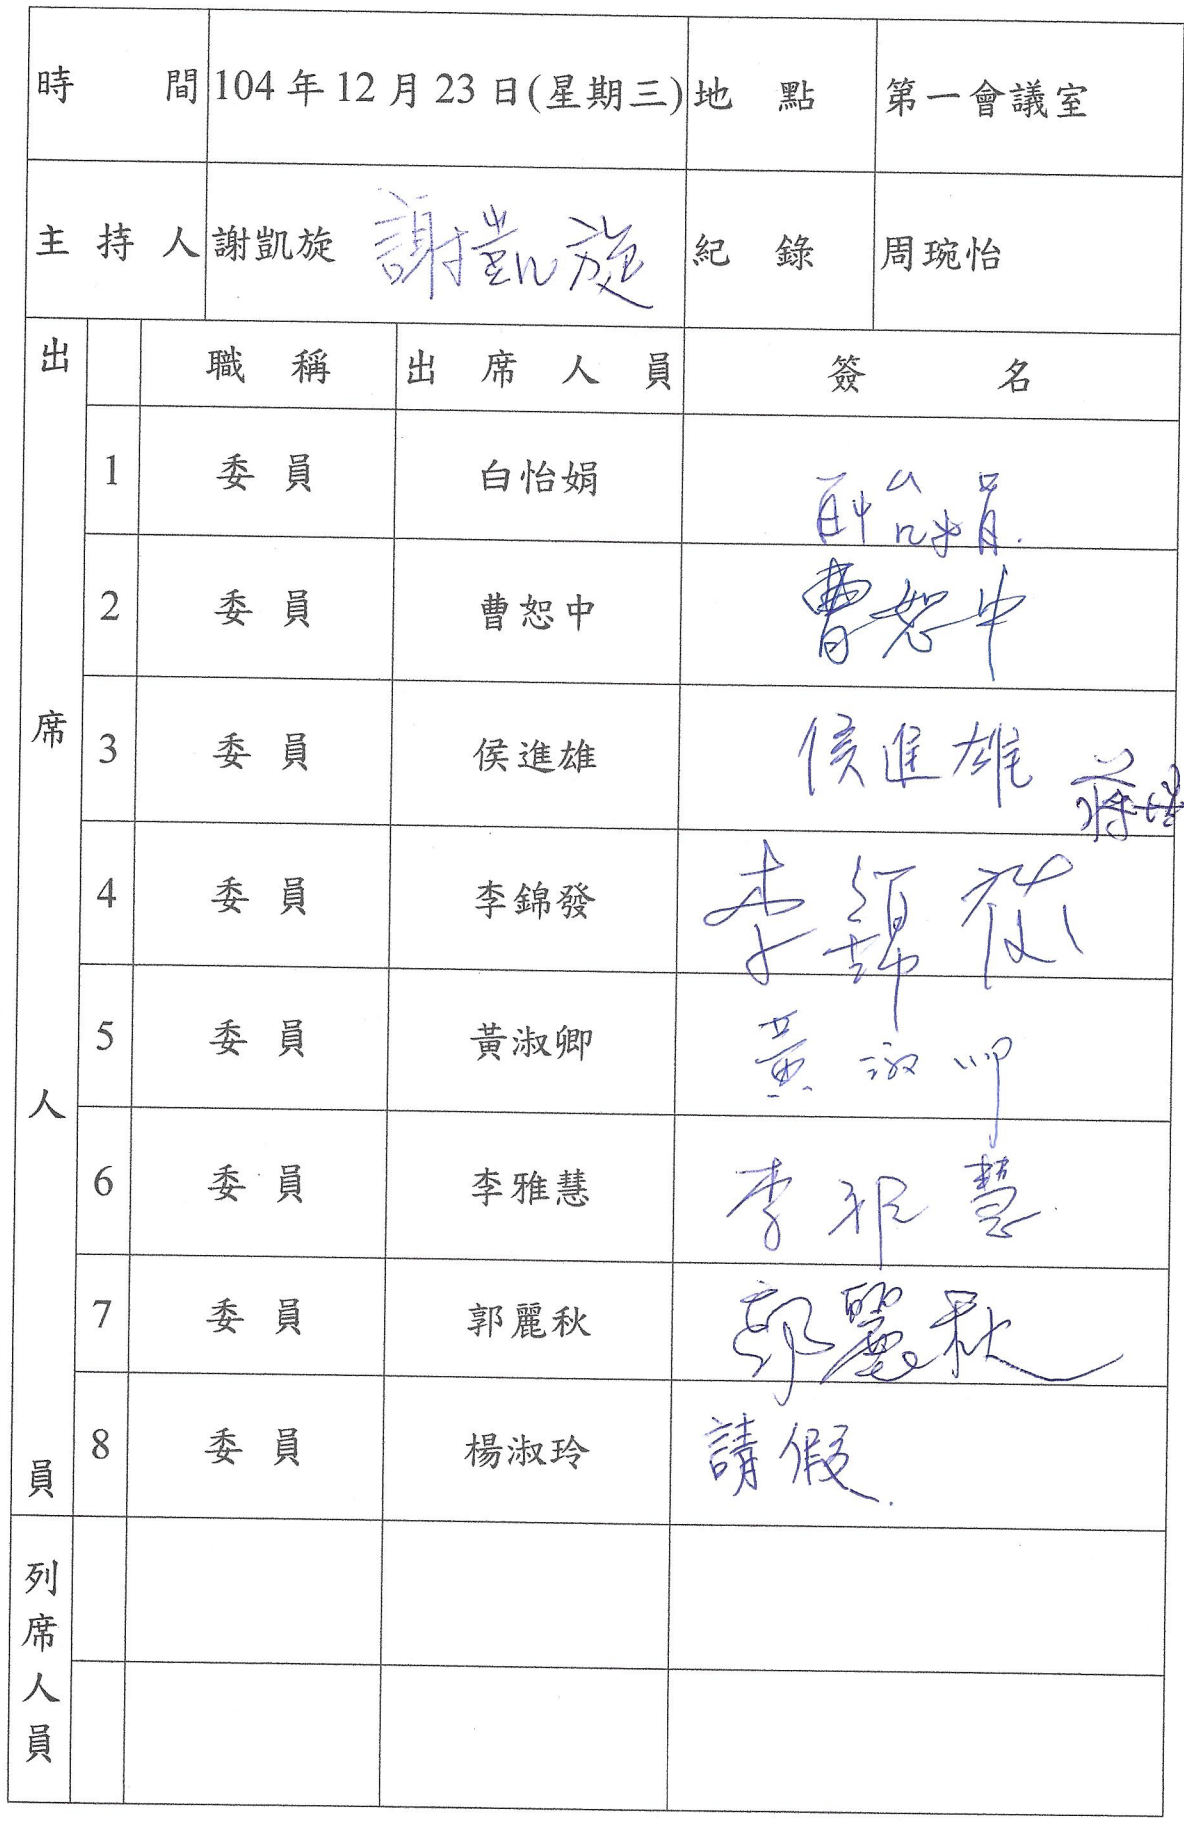 時 間 104年12月23日(星期三) 地 點 第一會議室
主持人 謝凱旋 謝凱旋 紀 錄 周琬怡
出席人員 職 稱 出席人員 簽 名
1 委員 白怡娟
2 委員 曹恕中 曹恕中
3 委員 侯進雄 侯進雄 蔣
4 委員 李錦發 李錦發
5 委員 黃淑卿 黃淑卿
6 委員 李雅慧 李雅慧
7 委員 郭麗秋 郭麗秋
8 委員 楊淑玲 請假.
列席人員